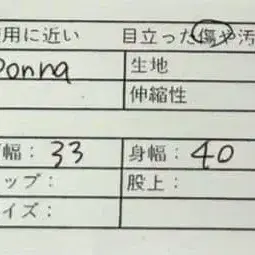 用に近い 目立った傷や汚
Donna 生地
伸縮性
幅： 33 身幅： 40
ップ： 股上：
イズ：